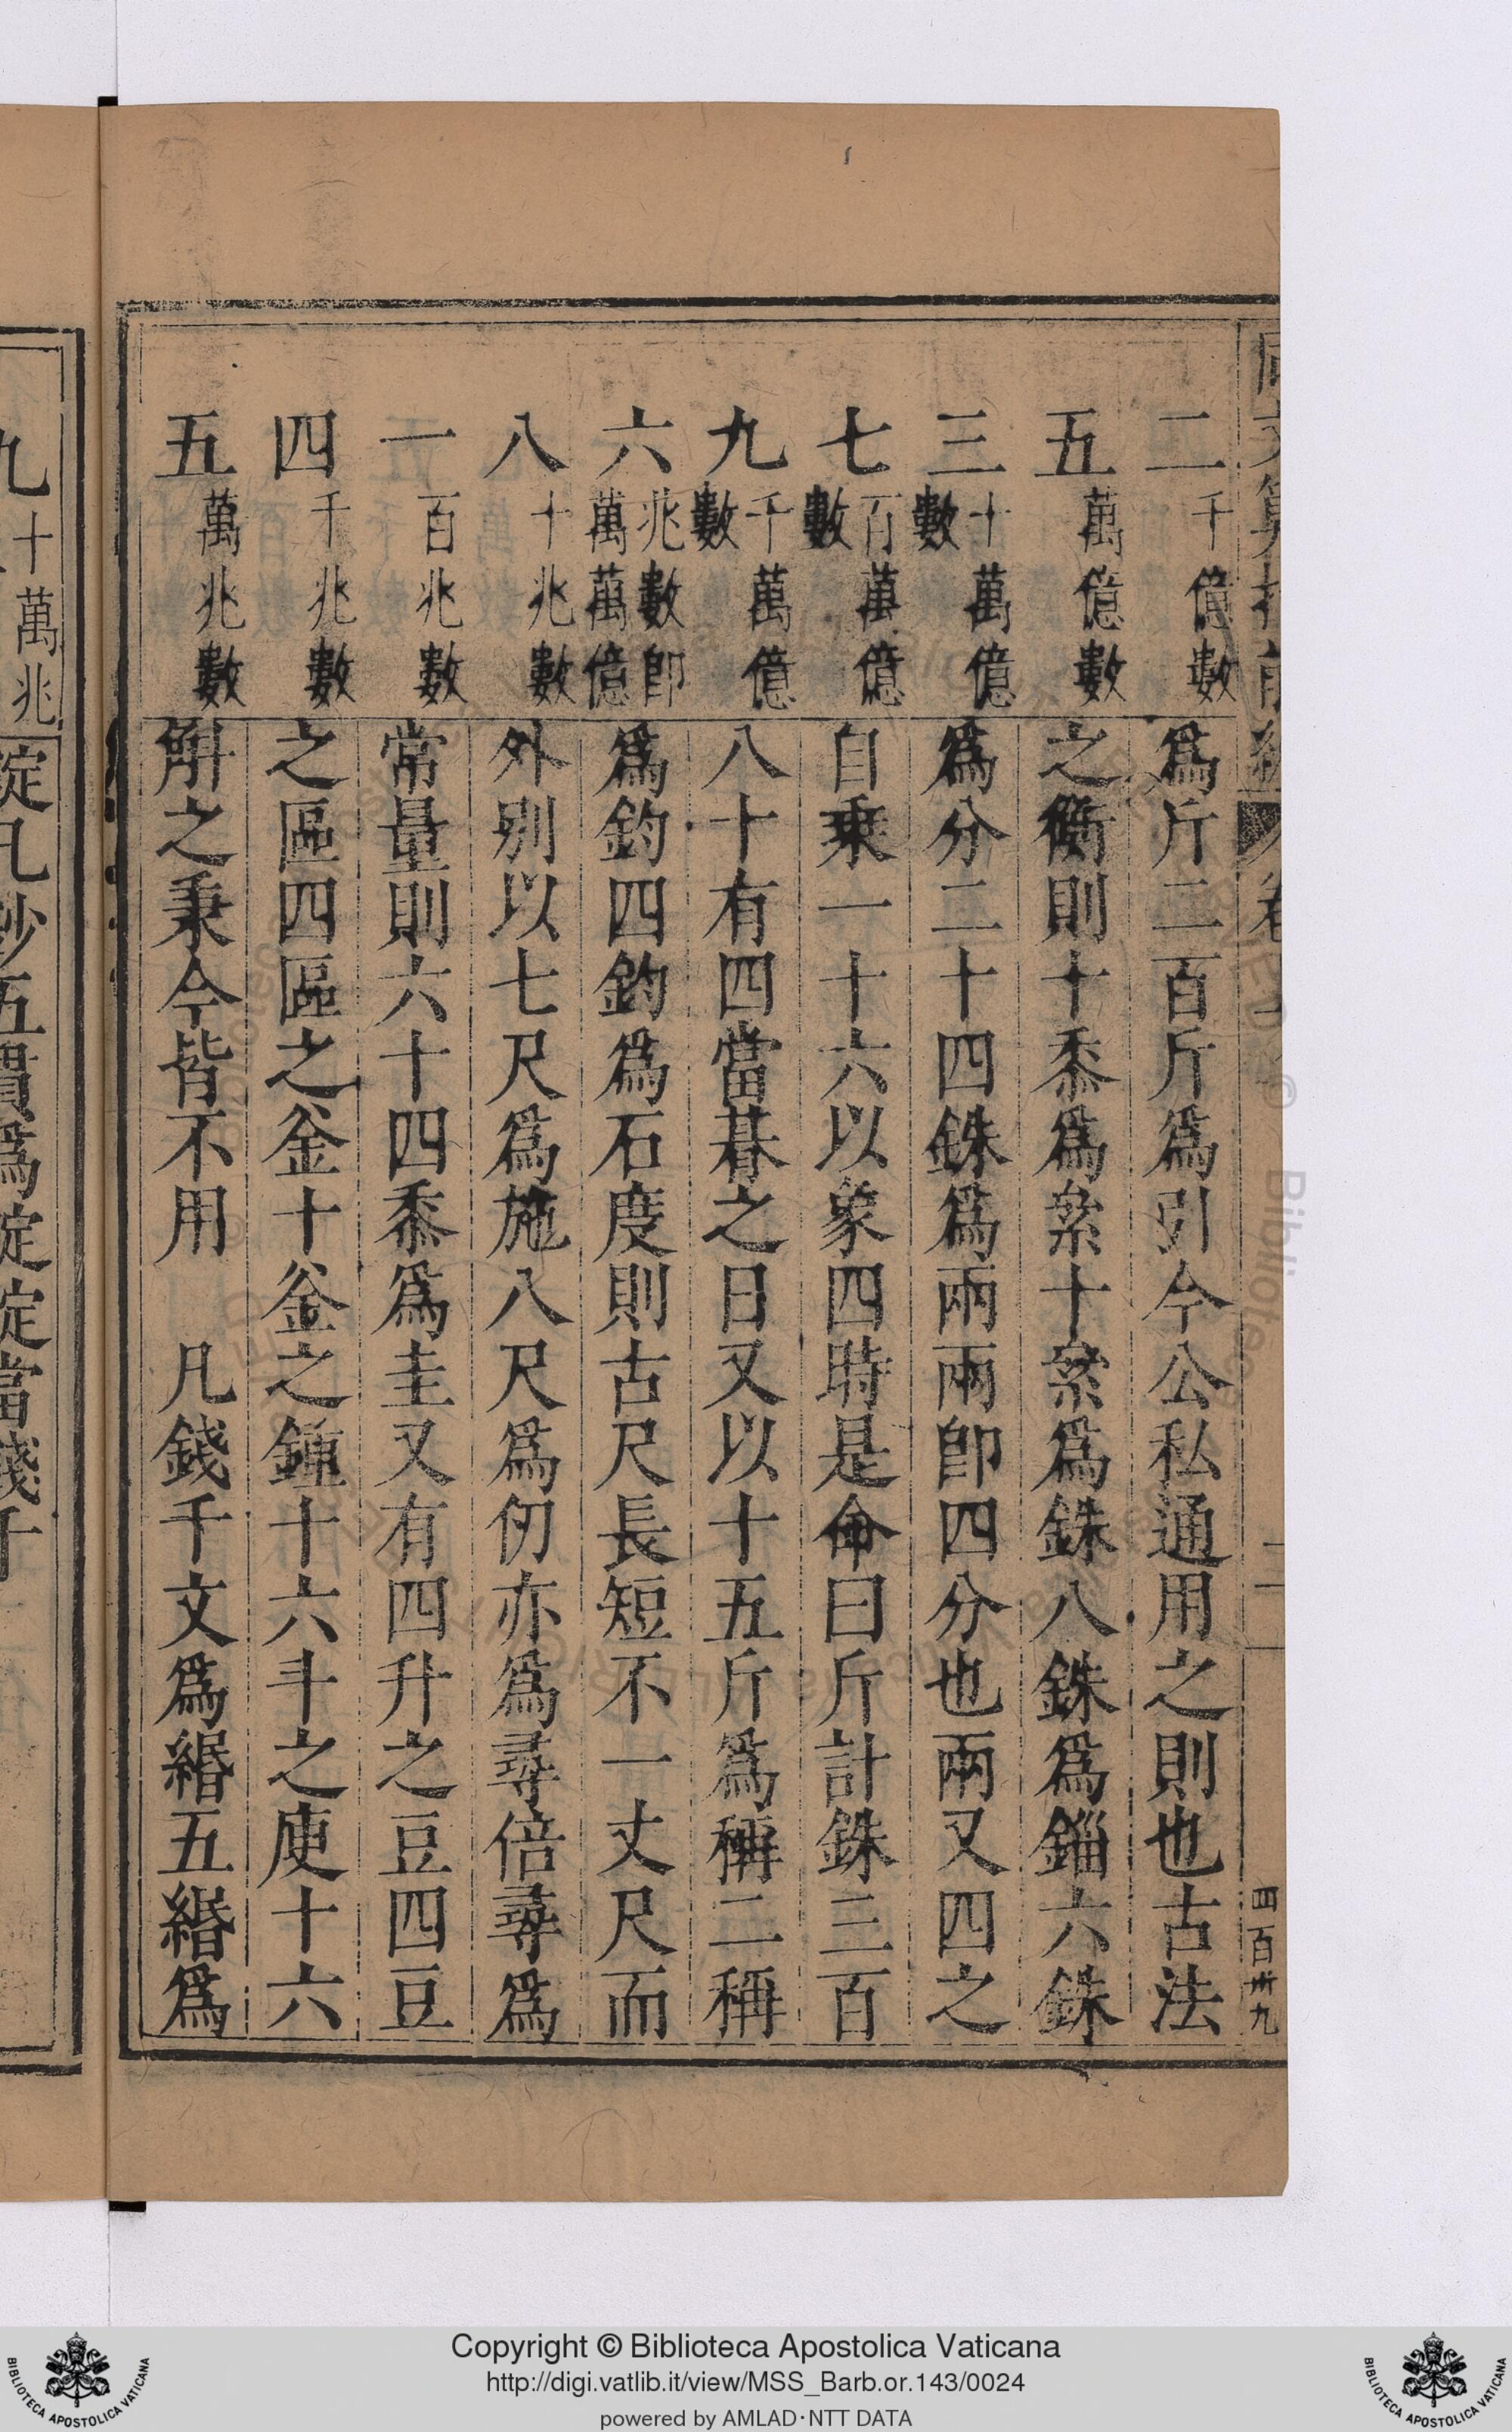 二 千億數
五 萬億數
三 十萬億數
七 百萬億數
九 千萬億數
六 兆數卽萬萬億
八 十兆數
一 百兆數
四 千兆數
五 萬兆數
爲斤二百斤爲引今公私通用之則也古法
之衡則十黍爲絫十絫爲銖八銖爲錙六銖
爲分二十四銖爲兩兩卽四分也兩又四之
自乘一十六以象四時是命曰斤計銖三百
八十有四當朞之日又以十五斤爲稱二稱
爲鈞四鈞爲石度則古尺長短不一丈尺而
外別以七尺爲施八尺爲仞亦爲尋倍尋爲
常量則六十四黍爲圭又有四升之豆四豆
之區四區之釜十釜之鍾十六斗之庾十六
斛之秉今皆不用 凡錢千文爲緡五緡爲
四百卅九
九 十萬兆
Copyright © Biblioteca Apostolica Vaticana
http://digi.vatlib.it/view/MSS_Barb.or.143/0024
powered by AMLAD·NTT DATA
BIBLIOTECA APOSTOLICA VATICANA
BIBLIOTECA APOSTOLICA VATICANA